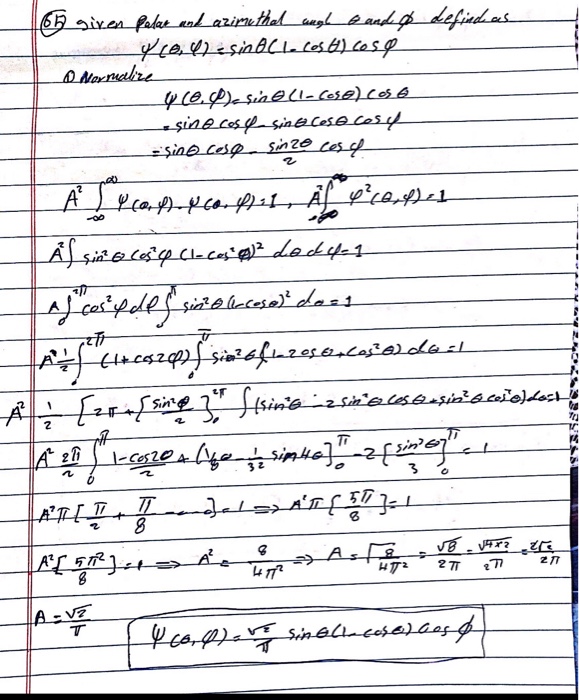 65) given Polar and azimuthal angl θ and ϕ defind as
Ψ(θ, φ) = sinθ(1- cosθ) cosφ
① Normalize
ψ(θ, φ) = sinθ(1- cosθ) cosθ
= sinθ cosφ - sinθ cosθ cosφ
= sinθ cosφ - sin2θ/2 cosφ
A² ∫_{-∞}^{∞} Ψ(θ, φ). Ψ(θ, φ) = 1 , A² ∫_{-∞}^{∞} Ψ²(θ, φ) = 1
A² ∫ sin²θ cos²φ (1- cos²θ)² dθ dφ = 1
A ∫_0^{2π} cos²φ dφ ∫_0^{π} sin²θ (1- cosθ)² dθ = 1
A² 1/2 ∫_0^{2π} (1 + cos2φ) ∫_0^{π} sin²θ (1 - 2 osθ + cos²θ) dθ = 1
A² 1/2 [2π + [sin²φ/2]_0^{2π} ∫ (sin²θ - 2 sin²θ cosθ + sin²θ cos²θ) dθ = 1
A² 2π/2 ∫_0^{π} 1-cos2θ/2 + (1/8 θ - 1/32 sin4θ]_0^{π} - 2 [sin³θ/3]_0^{π} = 1
A² π [π/2 + π/8 - - - ] = 1 ⇒ A² π [5π/8] = 1
A² [5π²/8] = 1 ⇒ A² = 8/4π² ⇒ A = √8/4π² = √8/2π = √4×2/2π = 2√2/2π
A = √2/π
Ψ(θ, φ) = √2/π sinθ(1- cosθ) cos ϕ